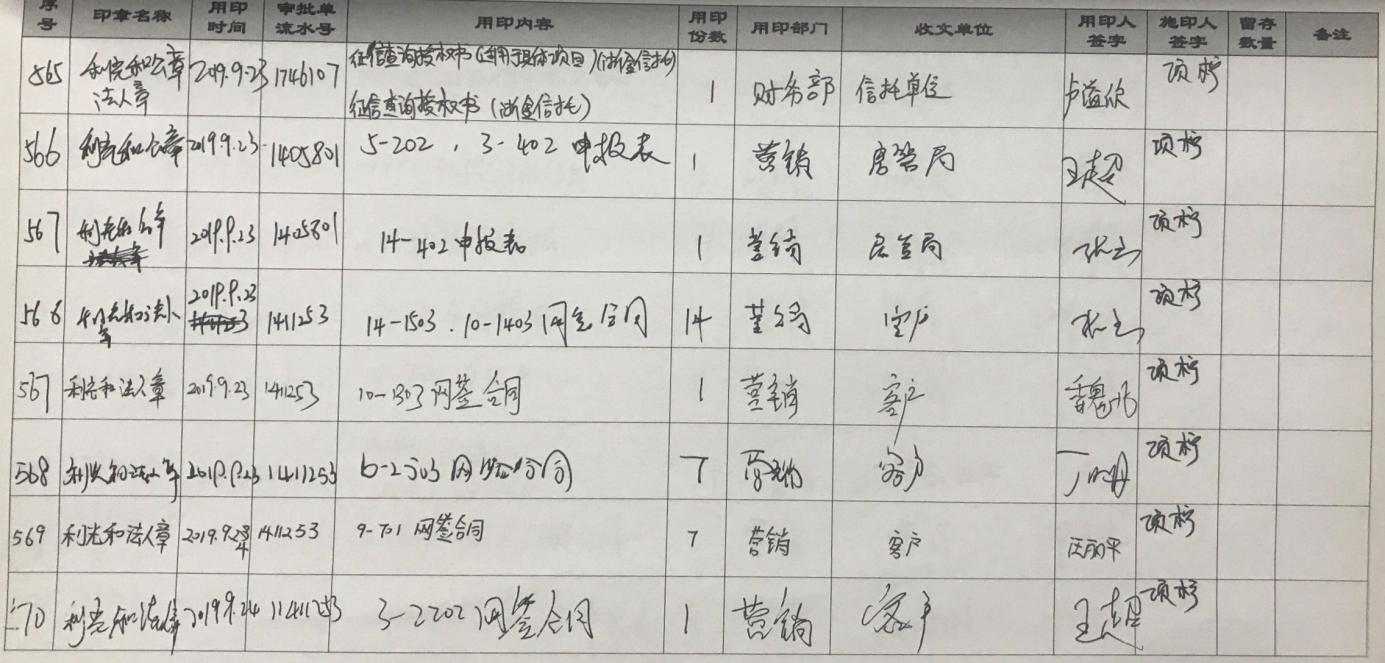 序号 印章名称 用印时间 审批单流水号 用印内容 用印份数 用印部门 收文单位 用印人签字 施印人签字 留存数量 备注
565 利 和公章 法人章 2019.9.23 1746107 征信查询授权书(适用担保项目)(浙金信托) 征信查询授权书(浙金信托) 1 财务部 信托单位 卢溢欣 项柠
566 利光和公章 2019.9.23 1405801 5-202,3-402 申报表 1 营销 房管局 王超 项柠
567 利光和公章 2019.9.23 1405801 14-402申报表 1 营销 房管局 项柠
566 利光和法人章 2019.9.23 1411253 14-1503.10-1403网签合同 14 营销 客户 项柠
567 利光和法人章 2019.9.23 1411253 10-1303网签合同 1 营销 客户 魏 项柠
568 利光和法人章 2019.9.23 1411253 6-2503网签合同 7 营销 客户 丁明 项柠
569 利光和法人章 2019.9.24 1411253 9-701 网签合同 7 营销 客户 汪丽平 项柠
570 利光和法人章 2019.9.24 11411253 3-2202网签合同 1 营销 客户 王超 项柠